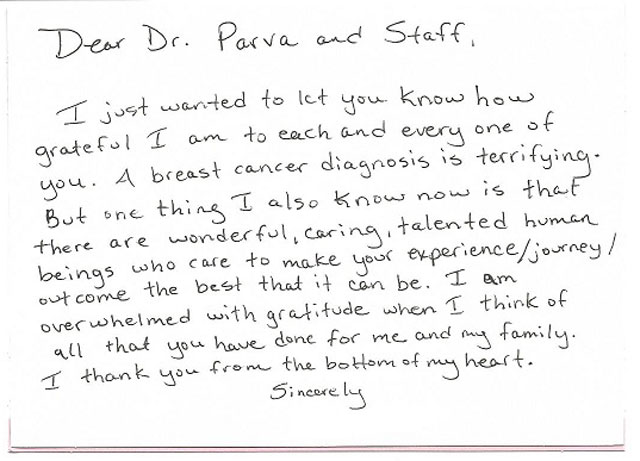 Dear Dr. Parva and Staff,
I just wanted to let you know how
grateful I am to each and every one of
you. A breast cancer diagnosis is terrifying.
But one thing I also know now is that
there are wonderful, caring, talented human
beings who care to make your experience/journey/
outcome the best that it can be. I am
overwhelmed with gratitude when I think of
all that you have done for me and my family.
I thank you from the bottom of my heart.
Sincerely